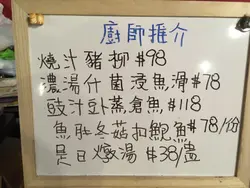 廚師推介
燒汁豬柳 $98
濃湯什菌浸魚滑 $78
豉汁卦蒸倉魚 $118
魚肚冬菇扣鵝魚 $78/份
是日燉湯 $38/盅